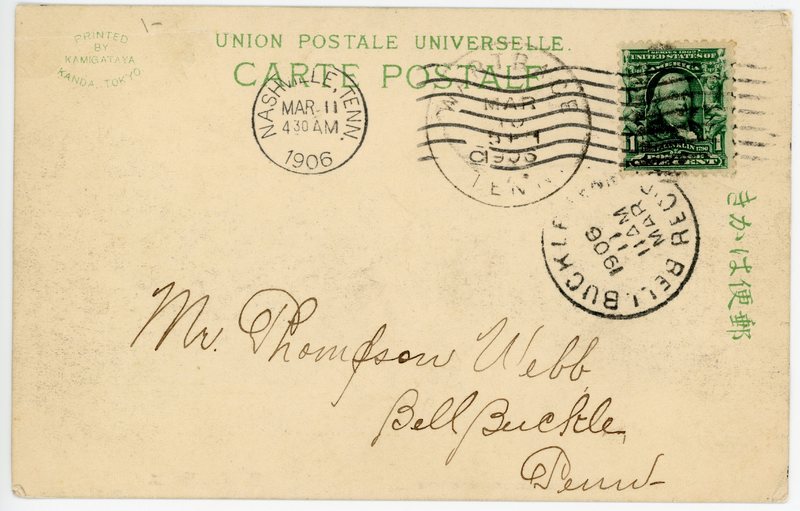 PRINTED
BY
KAMIGATAYA
KANDA, TOKYO
1-
UNION POSTALE UNIVERSELLE.
CARTE POSTALE
NASHVILLE, TENN.
MAR 11
4 30 AM
1906
MAR
10
1906
TENN.
SERIES 1902
UNITED STATES OF
AMERICA
FRANKLIN 1790
1
POSTAGE
CENT
BELL BUCKLE
TENN
REC'D
MAR
11
11 AM
1906
きかは便郵
Mr. Thompson Webb
Bell Buckle
Tenn